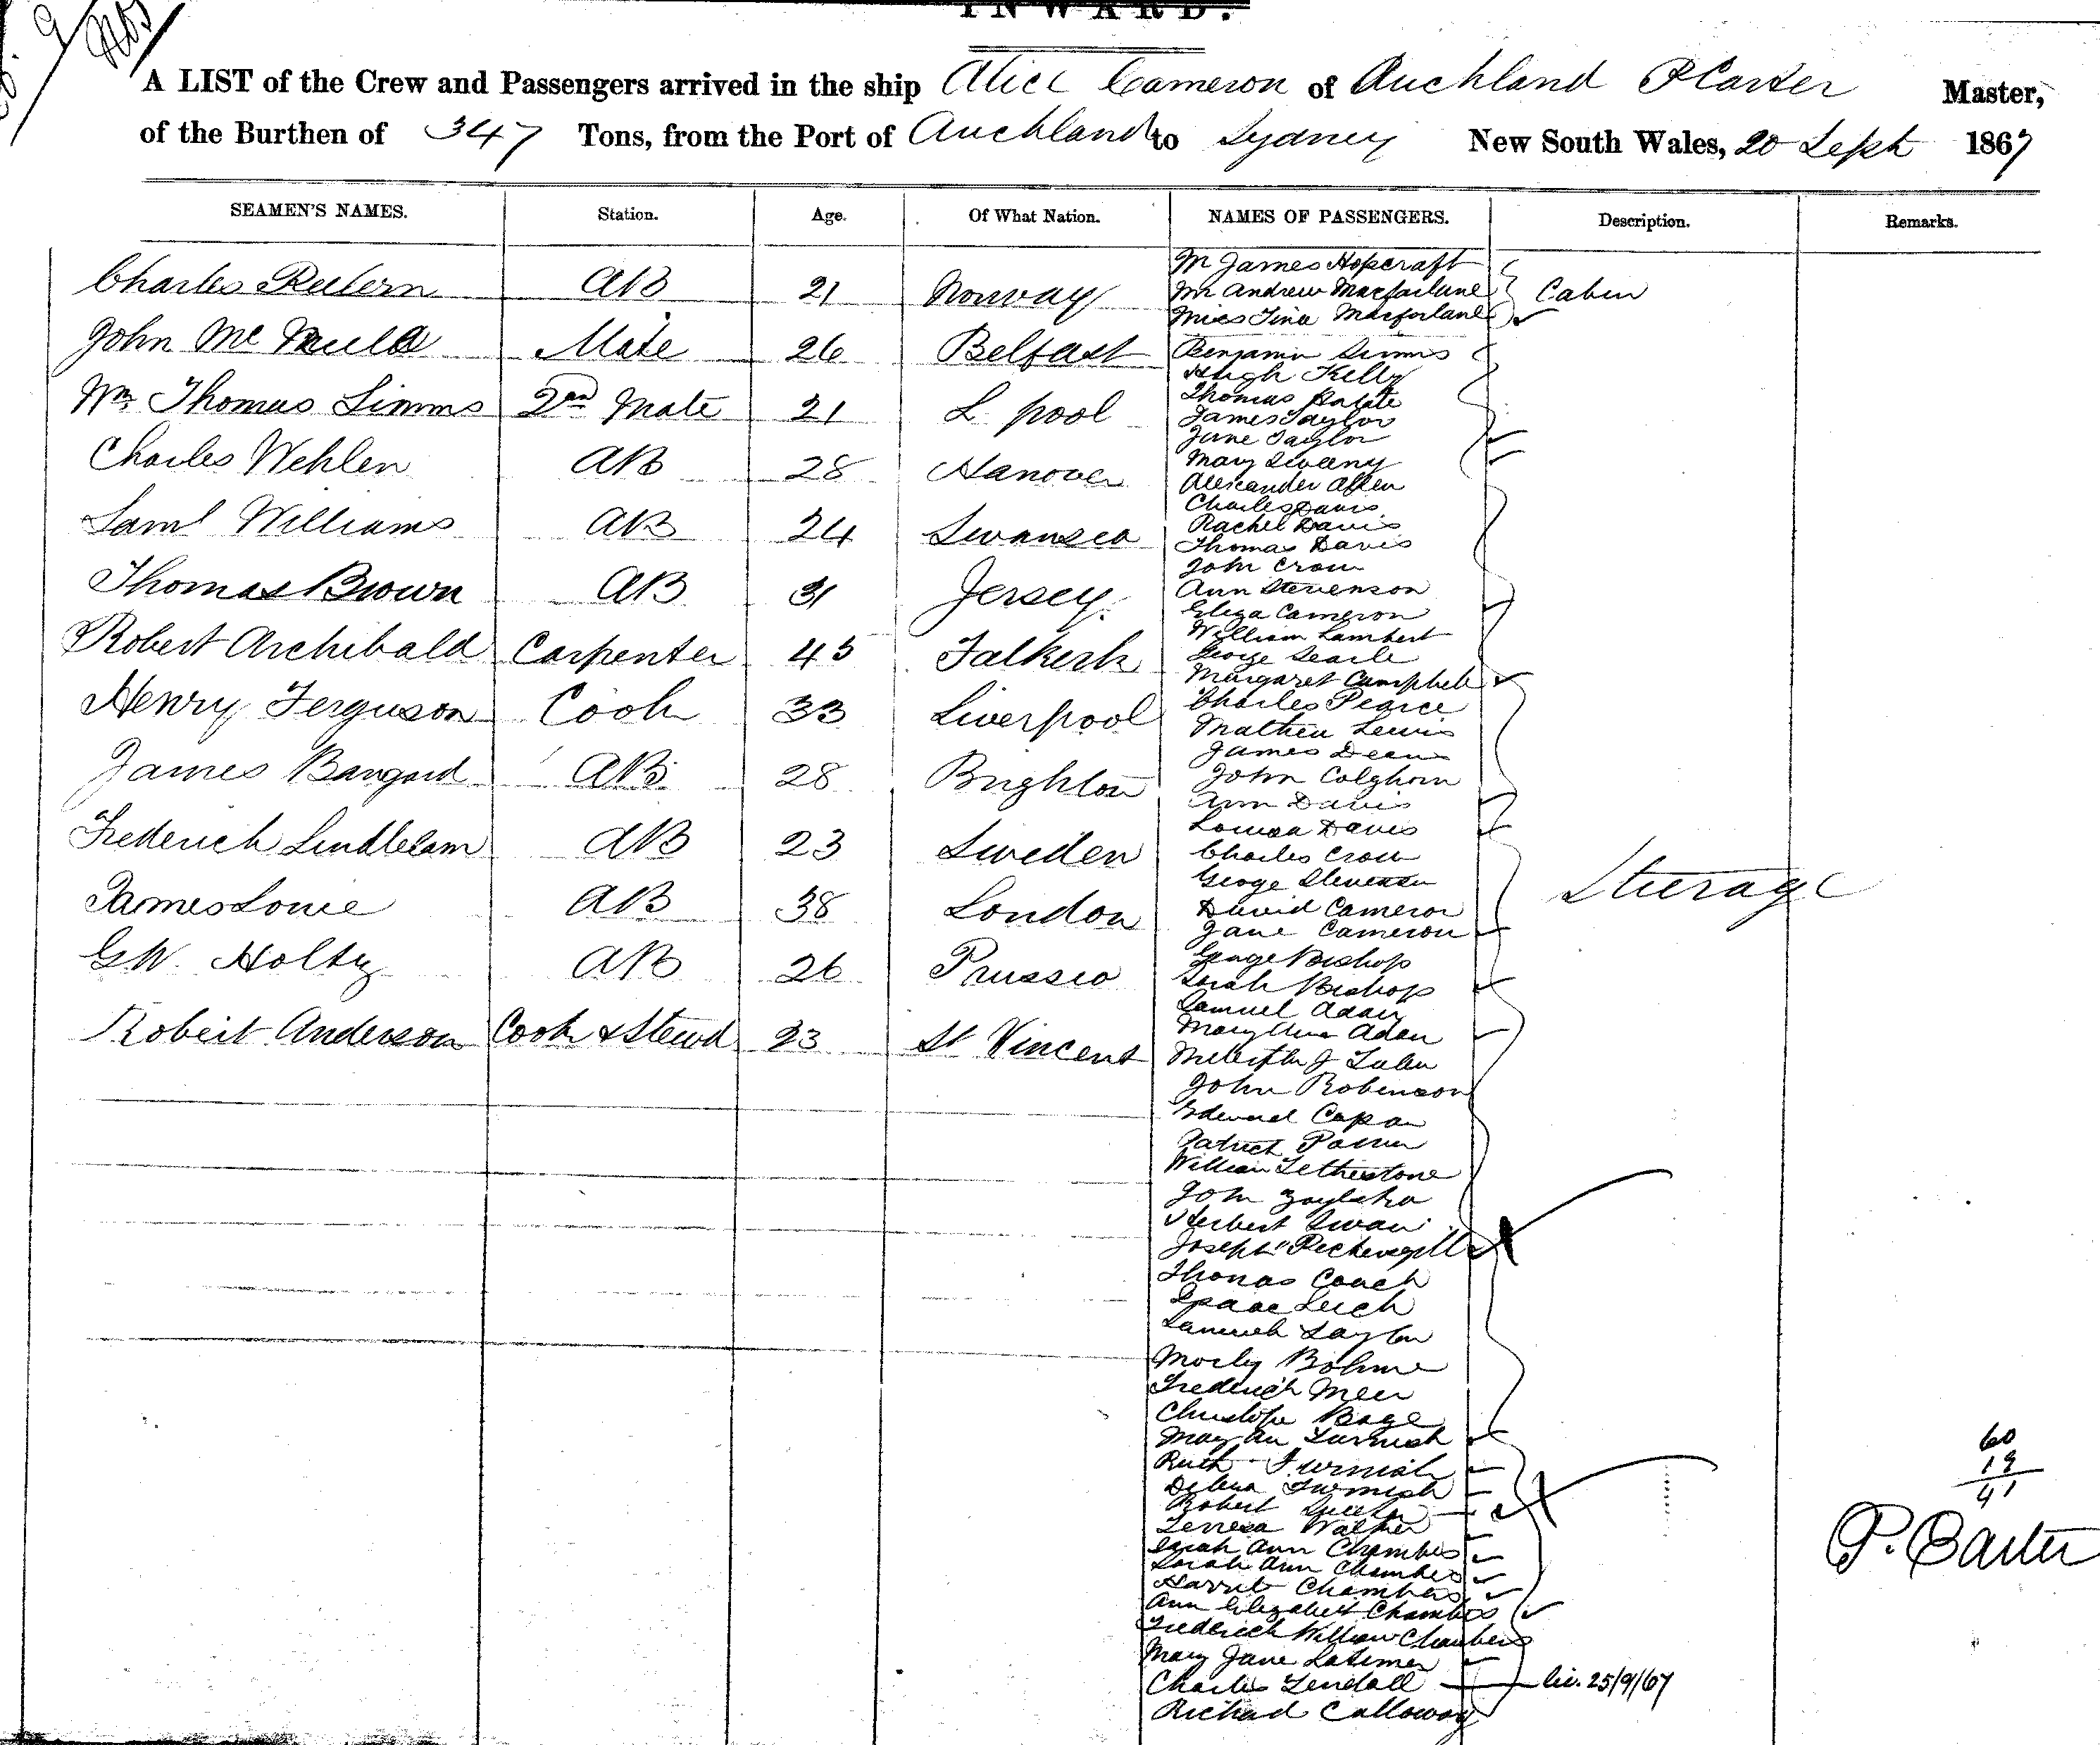 INWARD.
A LIST of the Crew and Passengers arrived in the ship Alice Cameron of Auckland P Carter Master,
of the Burthen of 347 Tons, from the Port of Auckland to Sydney New South Wales, 20 Sept 1867
SEAMEN'S NAMES. Station. Age. Of What Nation. NAMES OF PASSENGERS. Description. Remarks.
Charles AB 21 Norway
John Mc Mate 26 Belfast
Wm Thomas Simms 2nd Mate 21 L pool
Charles Wehlen AB 28 Hanover
Saml Williams AB 24 Swansea
Thomas Brown AB 31 Jersey.
Robert Archibald Carpenter 45 Falkirk
Henry Ferguson Cook 33 Liverpool
James Bangard AB 28 Brighton
Frederich AB 23 Sweden
James Lowie AB 38 London
G W. Holtz AB 26 Prussia
Robert Anderson Cook & Stewd 23 St Vincent
Mr James Hopcraft
Mr Andrew Macfarlane
Miss Tina Macfarlane
Cabin
Benjamin Simms
Hugh Kelly
Thomas
James Taylor
Jane Taylor
Mary Sweeny
Alexander Allen
Charles Davis
Rachel Davis
Thomas Davis
John Crow
Ann Stevenson
Eliza Cameron
William Lambert
George Searle
Margaret Campbell
Charles Pearce
Mathew Lewis
James Deans
John Colghorn
Ann Davis
Louisa Davis
Charles Crow
George Stevenson
David Cameron
Jane Cameron
George Bishop
Sarah Bishop
Samuel Adan
Mary Ann Adan
J
John Robinson
Edward Capan
Patrick
William Tetherstone
John
Herbert Swan
Joseph Pickersgill
Thomas Couch
Isaac Leech
Taylor
Morly Bohme
Frederick Meer
Page
Mary An Furnish
Ruth Furnish
Furnish
Robert
Terresa Walker
Sarah Ann Chambers
Sarah Ann Chambers
Harriet Chambers
Ann Elizabeth Chambers
Frederick William Chambers
Mary Jane Latimer
Charles Tendall
Richard Calloway
Steerage
lic. 25/9/67
60
19
41
P. Carter